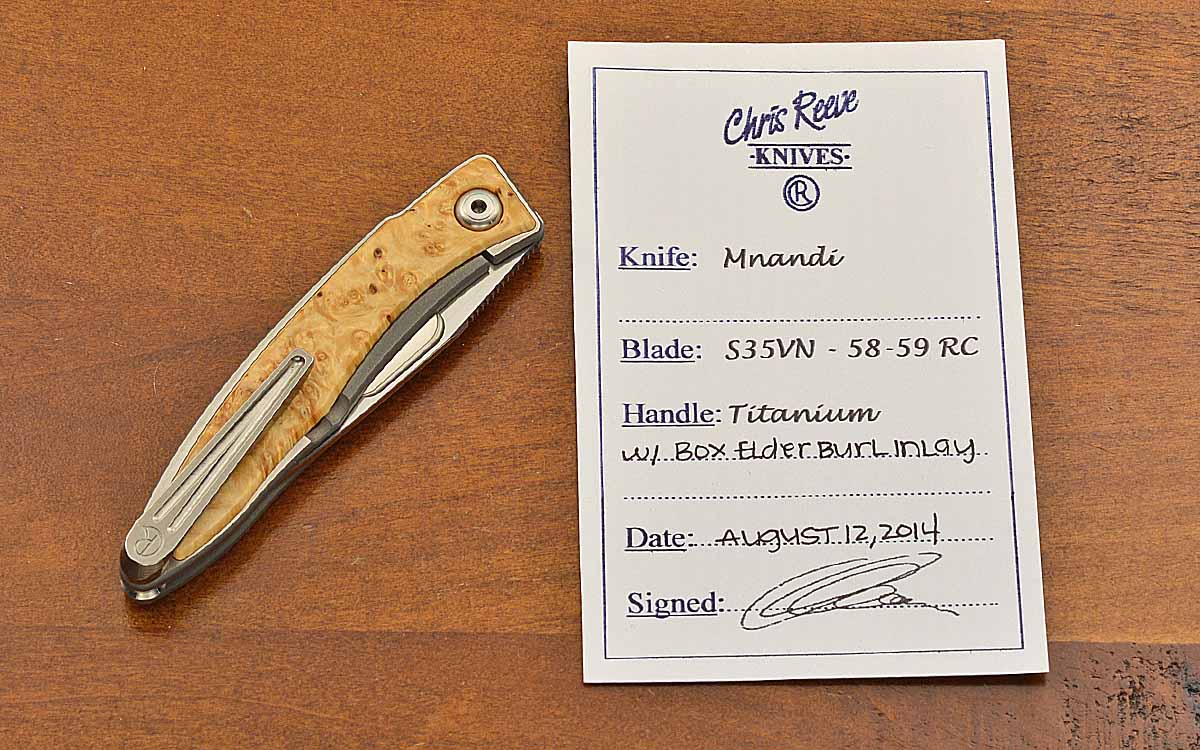 Chris Reeve
-KNIVES-
R
Knife: Mnandi
Blade: S35VN - 58-59 RC
Handle: Titanium
w/ Box Elder Burl Inlay
Date: August 12, 2014
Signed: